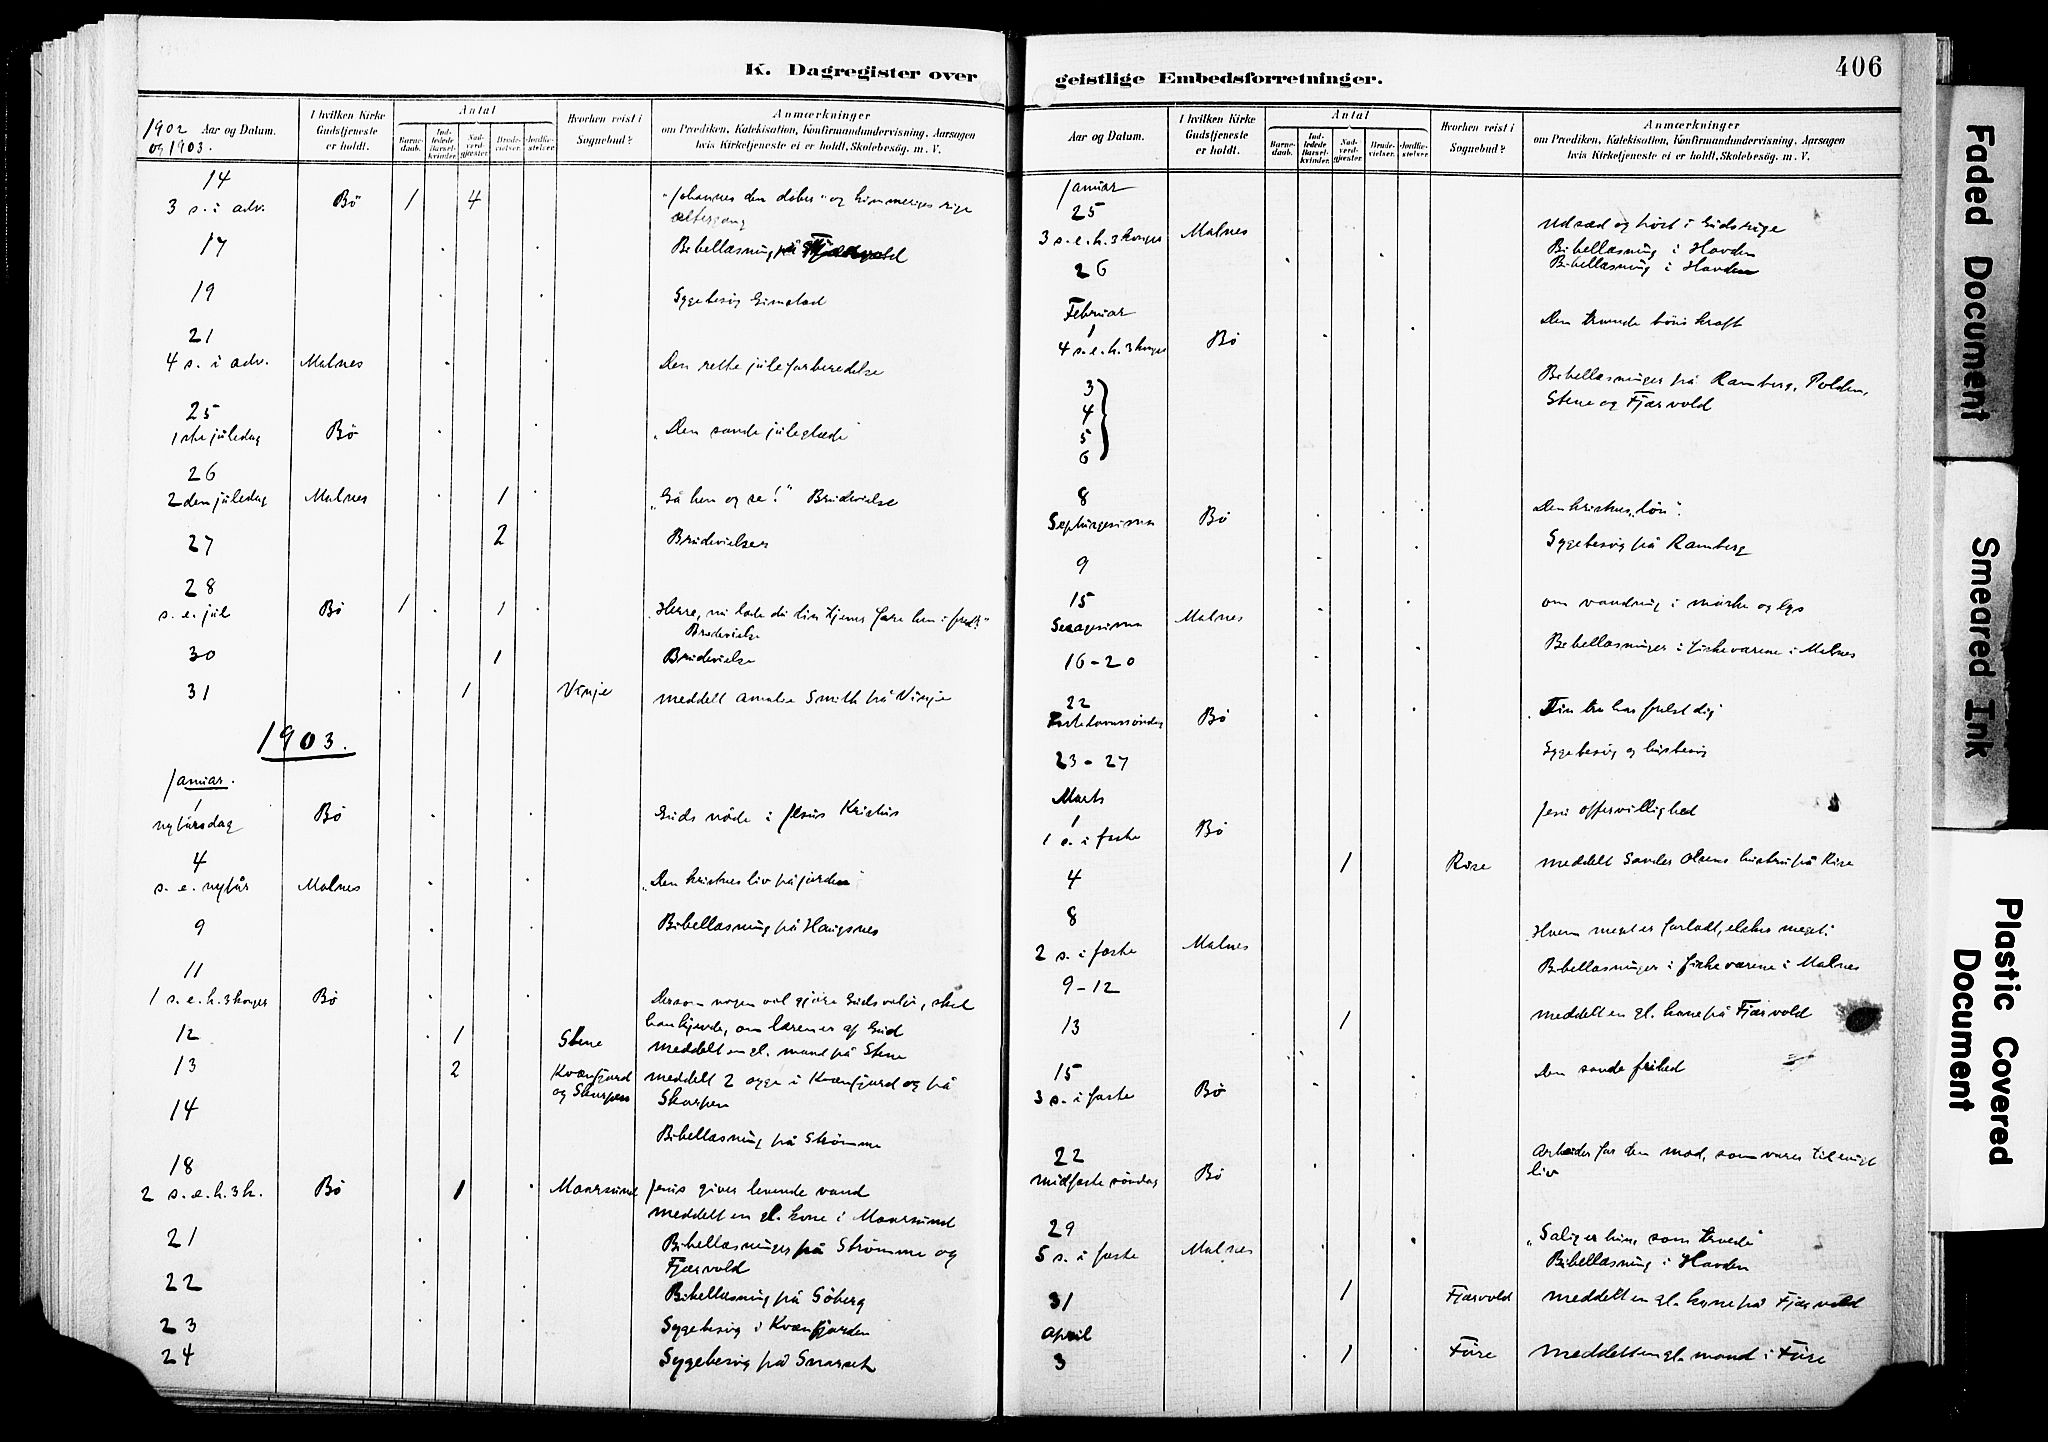 K. Dagregister over
1902 og 1903.
Aar og Datum.
I hvilken Kirke Gudstjeneste er holdt.
Antal
Barnedaab.
Indledede Barselkvinder.
Nadverdgjæster.
Brudevielser.
Jordfæstelser.
Hvorhen reist i Sognebud?
Anmærkninger
om Prædiken, Katekisation, Konfirmandundervisning, Aarsagen
hvis Kirketjeneste ei er holdt, Skolebesøg. m. V.
14
3 s. i adv. Bö 1 4 "Johannes den döber" og himmeriges rige
altergang
17 Bibellæsning på
19 Sygebesög Grimstad
21
4 s. i adv. Malnes Den rette juleforberedelse
25
1ste juledag Bö "Den sande juleglæde"
26
2den juledag Malnes 1 "Gå hen og se!" Brudevielse
27 2 Brudevielser
28
s. e. jul Bö 1 1 "Herre, nu lade du din tjener fare hen i fred."
Brudevielse
30 1 Brudevielse
31 1 Vinje meddelt Smith på Vinje
1903.
Januar.
1
nytårsdag Bö Guds nåde i Jesus Kristus
4
s. e. nytår Malnes "Den kristnes liv på jorden"
9 Bibellæsning på Haugsnes
11
1 s. e. h. 3 konger Bö Dersom nogen vil gjöre Guds vilje, skal
han kjende, om læren er af Gud
12 1 Stene meddelt en gl. mand på Stene
13 2 Kvænfjord og Skarpen meddelt 2 syge i Kvænfjord og på
Skarpen
14
Bibellæsning på Strömme
18
2 s. e. h. 3 k. Bö 1 Maarsund Jesus giver levende vand
meddelt en gl. kone i Maarsund
21 Bibellæsninger på Strömme og
Fjærvold
22 Bibellæsning på Söberg
23 Sygebesög i Kvænfjorden
24 Sygebesög på Snarset
geistlige Embedsforretninger.
406
Aar og Datum.
I hvilken Kirke Gudstjeneste er holdt.
Antal
Barnedaab.
Indledede Barselkvinder.
Nadverdgjæster.
Brudevielser.
Jordfæstelser.
Hvorhen reist i Sognebud?
Anmærkninger
om Prædiken, Katekisation, Konfirmandundervisning, Aarsagen
hvis Kirketjeneste ei er holdt, Skolebesøg. m. V.
Januar
25
3 s. e. h. 3 konger Malnes Udsæd og höst i Guds rige
Bibellæsning i Hovden
26 Bibellæsning i Hovden
Februar
1
4 s. e. h. 3 konger Bö Den troende böns kraft
3
4
5
6
Bibellæsninger på Ramberg, Polden,
Stene og Fjærvold
8
Septuagesima Bö Den kristnes "lön".
9 Sygebesög på Ramberg
15
Sexagesima Malnes om vandring i mörke og lys
16-20 Bibellæsninger i fiskeværene i Malnes
22
Fastelavnssöndag Bö Din tro har frelst dig
23-27 Sygebesög og husbesög
Marts
1
1 s. i faste Bö Jesu offervillighed
4 1 Röse meddelt Sander Olsens hustru på Röse
8
2 s. i faste Malnes "Hvem meget er forladt, elsker meget."
9-12 Bibellæsninger i fiskeværene i Malnes
13 1 meddelt en gl. kone på Fjærvold
15
3 s. i faste Bö Den sande frihed
22
midfaste söndag Bö Arbeider for den mad, som varer til evigt
liv
29
5 s. i faste Malnes "Salig er hun, som troede"
Bibellæsning i Hovden
31 1 Fjærvold meddelt en gl. kone på Fjærvold
April
3 1 Före meddelt en gl. mand i Före
Faded Document
Smeared Ink
Plastic Covered
Document